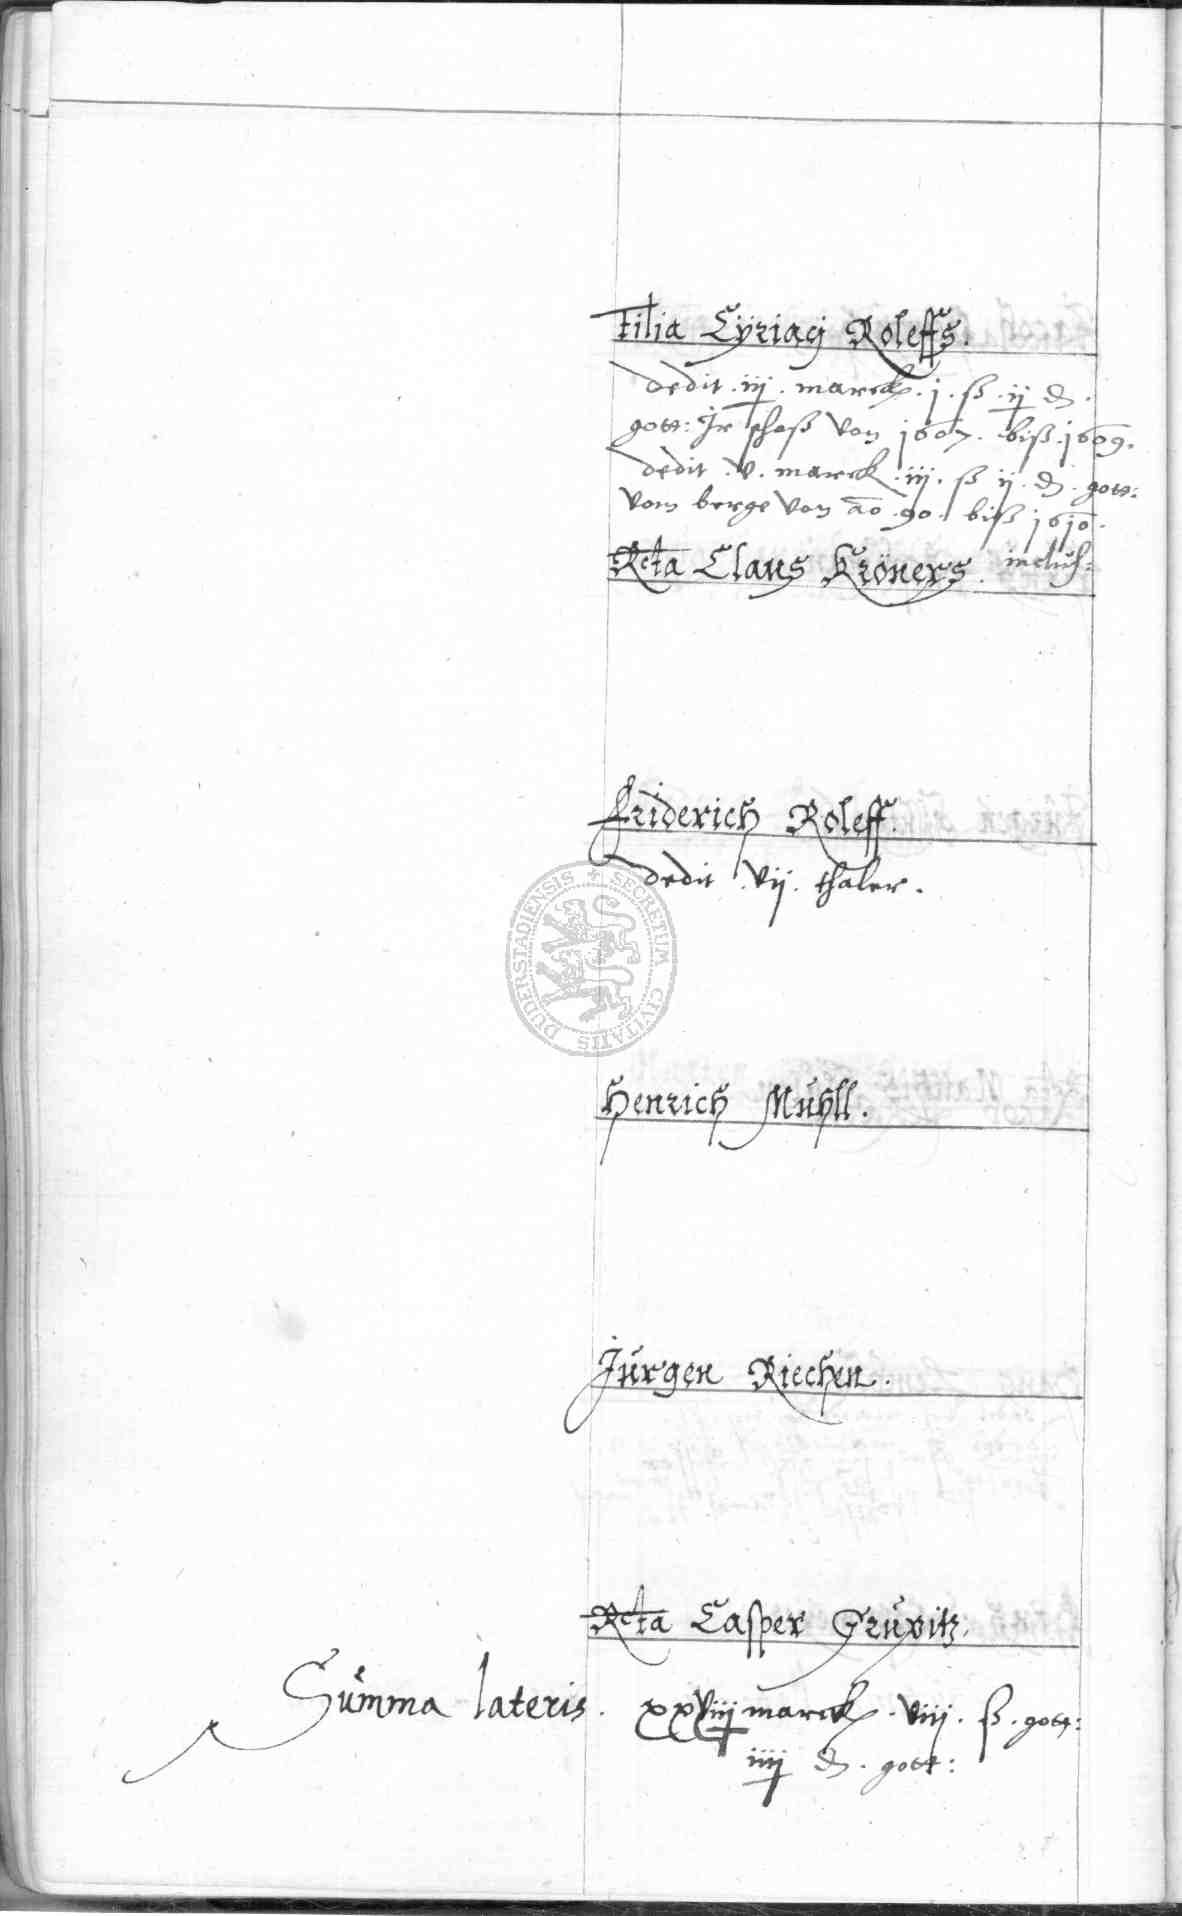 Filia Cÿriacj Roleffs.
dedit .iij. marck .j. ß .ij ₰.
gott: Jr schoß von 1607. biß 1609.
dedit .v. marck .iij. ß ij. ₰. gott:
vom berge von ao .90. biß 1610.
Rcta Claus Kröners. inclus:
Friderich Roleff.
dedit .vij. thaler.
DUDERSTADIENSIS + SECRETUM CIVITATIS
Henrich Mühll.
Jürgen Riechen.
Rcta Casper
Summa lateris. xxviij marck .viij. ß. gott:
iiij ₰. gott: